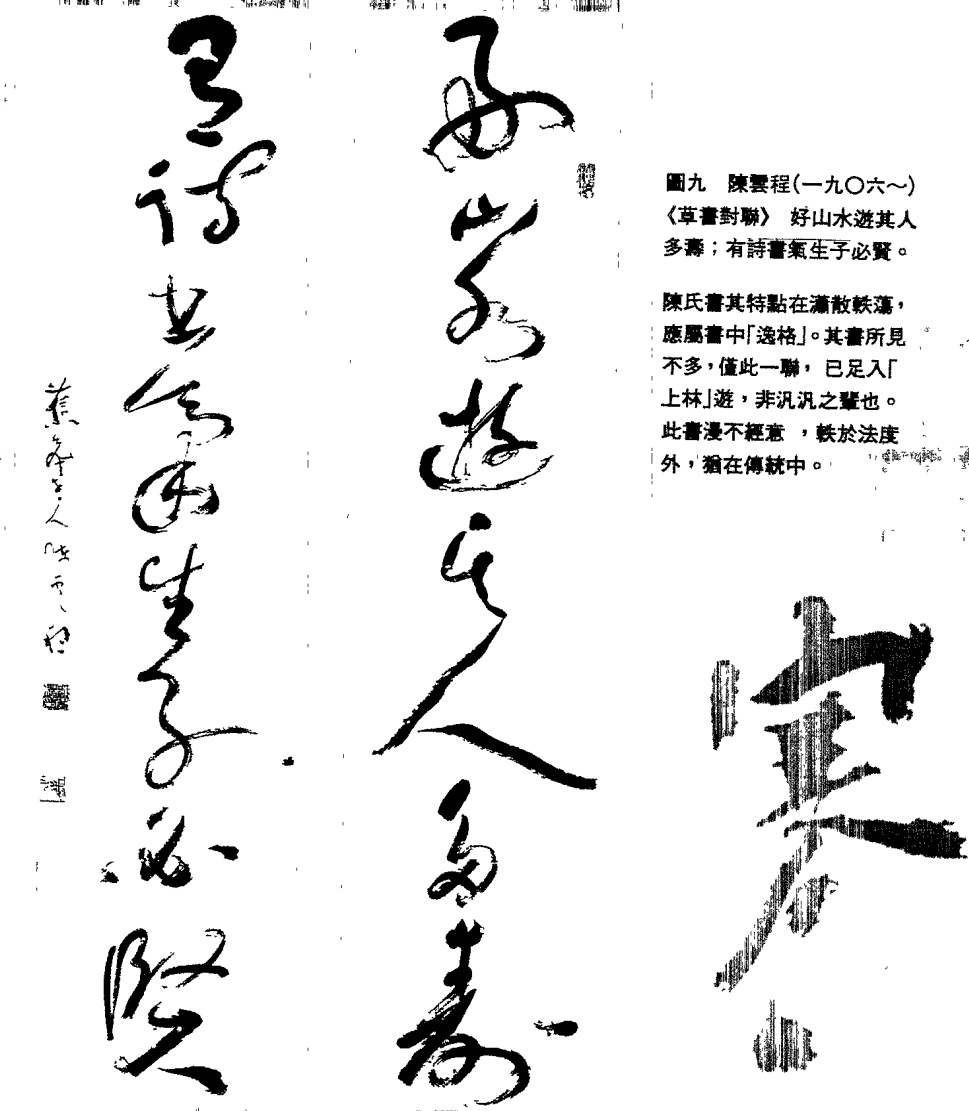 圖九 陳雲程(一九〇六～)
《草書對聯》 好山水遊其人
多壽；有詩書氣生子必賢。
陳氏書其特點在瀟散軼蕩，
應屬書中「逸格」。其書所見
不多，僅此一聯，已足入「
上林」遊，非汎汎之輩也。
此書漫不經意，軼於法度
外，猶在傳統中。
寒
好山水遊其人多壽
有詩書氣生子必賢
蕉人陳雲程